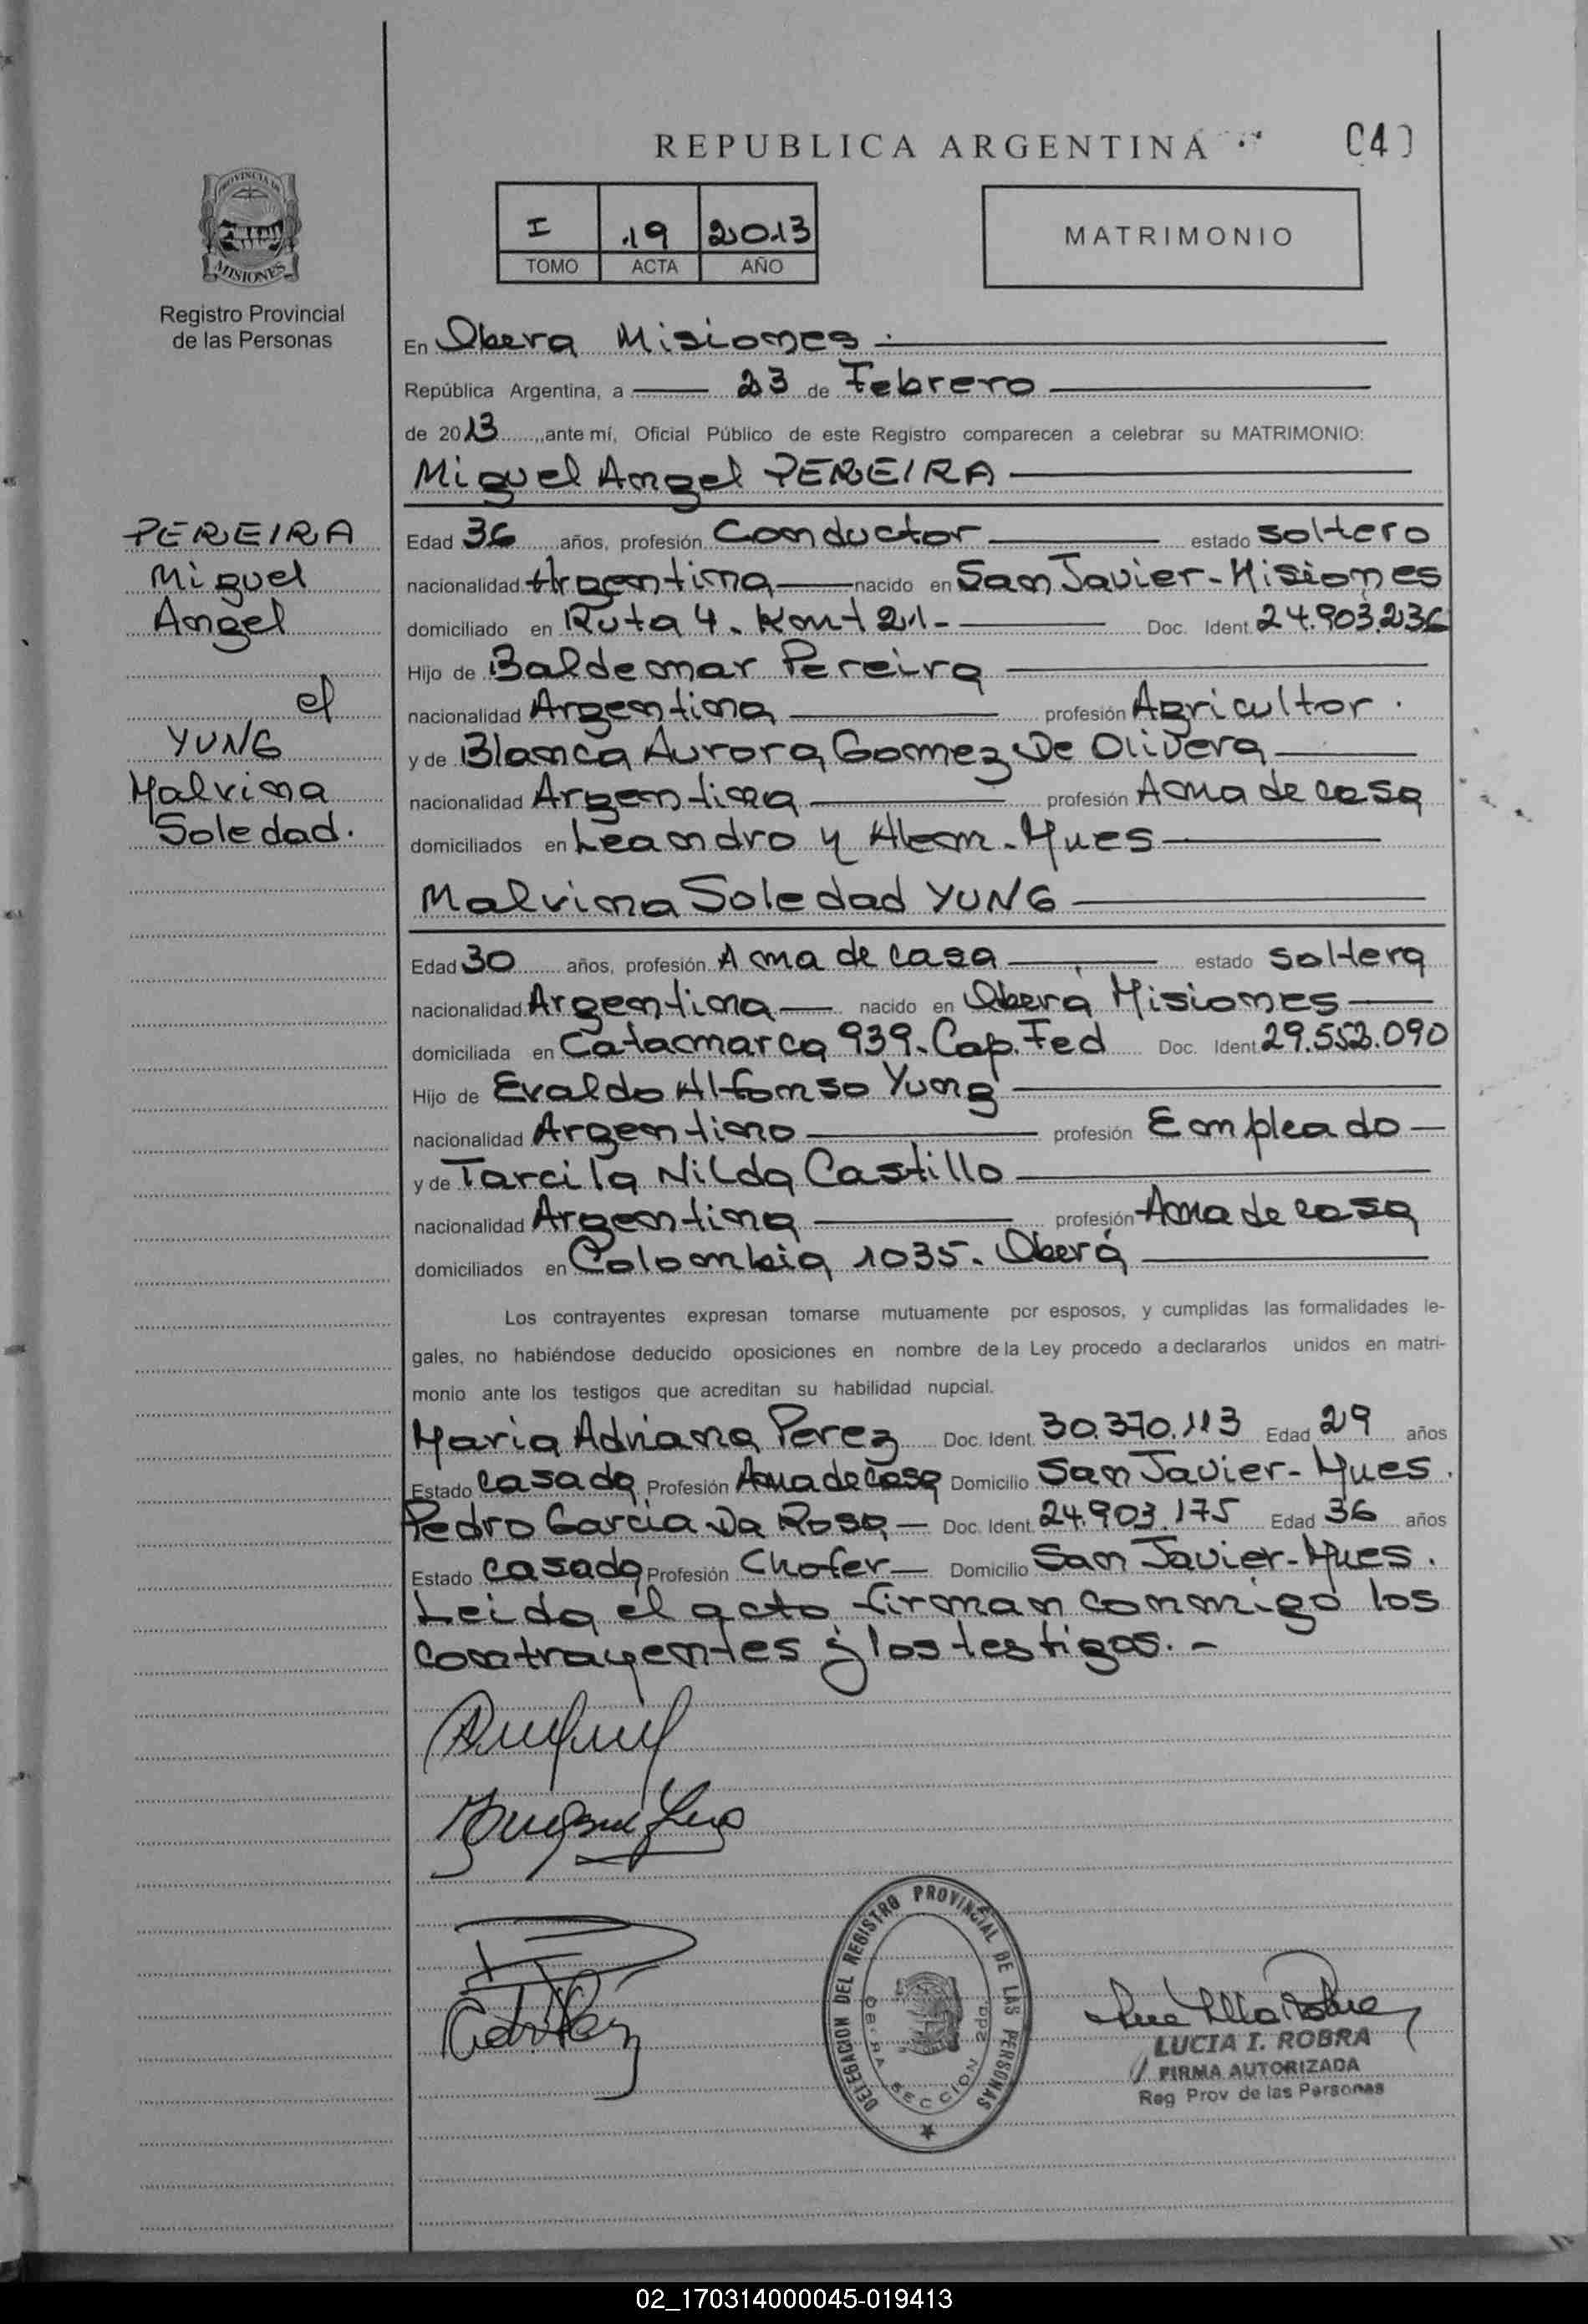 REPUBLICA ARGENTINA
PROVINCIA DE
MISIONES
Registro Provincial
de las Personas
I 19 2013
TOMO ACTA AÑO
MATRIMONIO
En Obera Misiones.
República Argentina, a 23 de Febrero
de 2013 ante mí, Oficial Público de este Registro comparecen a celebrar su MATRIMONIO:
Miguel Angel PEREIRA
PEREIRA
Miguel
Angel
YUNG
Malvina
Soledad.
Edad 36 años, profesión Conductor estado soltero
nacionalidad Argentina nacido en San Javier-Misiones
domiciliado en Ruta 4. Doc. Ident. 24.903.236
Hijo de Baldemar Pereira
nacionalidad Argentina profesión Agricultor.
y de Blanca Aurora Gomez De Olivera
nacionalidad Argentina profesión Ama de casa
domiciliados en Leandro N Alem-Mnes
Malvina Soledad YUNG
Edad 30 años, profesión Ama de casa estado soltera
nacionalidad Argentina nacido en Oberá Misiones
domiciliada en Catamarca 939. Cap. Fed Doc. Ident. 29.552.090
Hijo de Evaldo Alfonso Yung
nacionalidad Argentino profesión Empleado
y de Tarcila Nilda Castillo
nacionalidad Argentina profesión Ama de casa
domiciliados en Colombia 1035. Oberá
Los contrayentes expresan tomarse mutuamente por esposos, y cumplidas las formalidades le-
gales, no habiéndose deducido oposiciones en nombre de la Ley procedo a declararlos unidos en matri-
monio ante los testigos que acreditan su habilidad nupcial.
Maria Adriana Perez Doc. Ident. 30.370.113 Edad 29 años
Estado casada Profesión Ama de Casa Domicilio San Javier-Mnes.
Pedro Garcia Da Rosa Doc. Ident. 24.903.175 Edad 36 años
Estado casado Profesión Chofer Domicilio San Javier-Mnes.
Leida el acto firman conmigo los
contrayentes y los testigos.-
DELEGACION DEL REGISTRO PROVINCIAL DE LAS PERSONAS
SECCION
LUCIA I. ROBRA
FIRMA AUTORIZADA
Reg Prov de las Personas
02_170314000045-019413